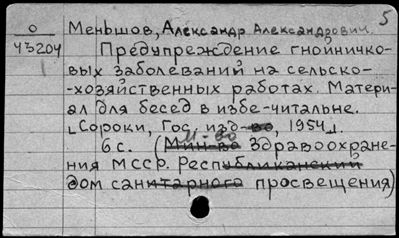 5
О Меньшов, Александр Александрович.
43204 Предупреждение гнойничко-
вых заболеваний на сельско-
-хозяйственных работах. Матери-
ал для бесед в избе-читальне.
[Сороки, Гос. изд-во, 1954].
6с. (Мин-во М-во Здравоохране-
ния МССР. Республиканский
дом санитарного просвещения)